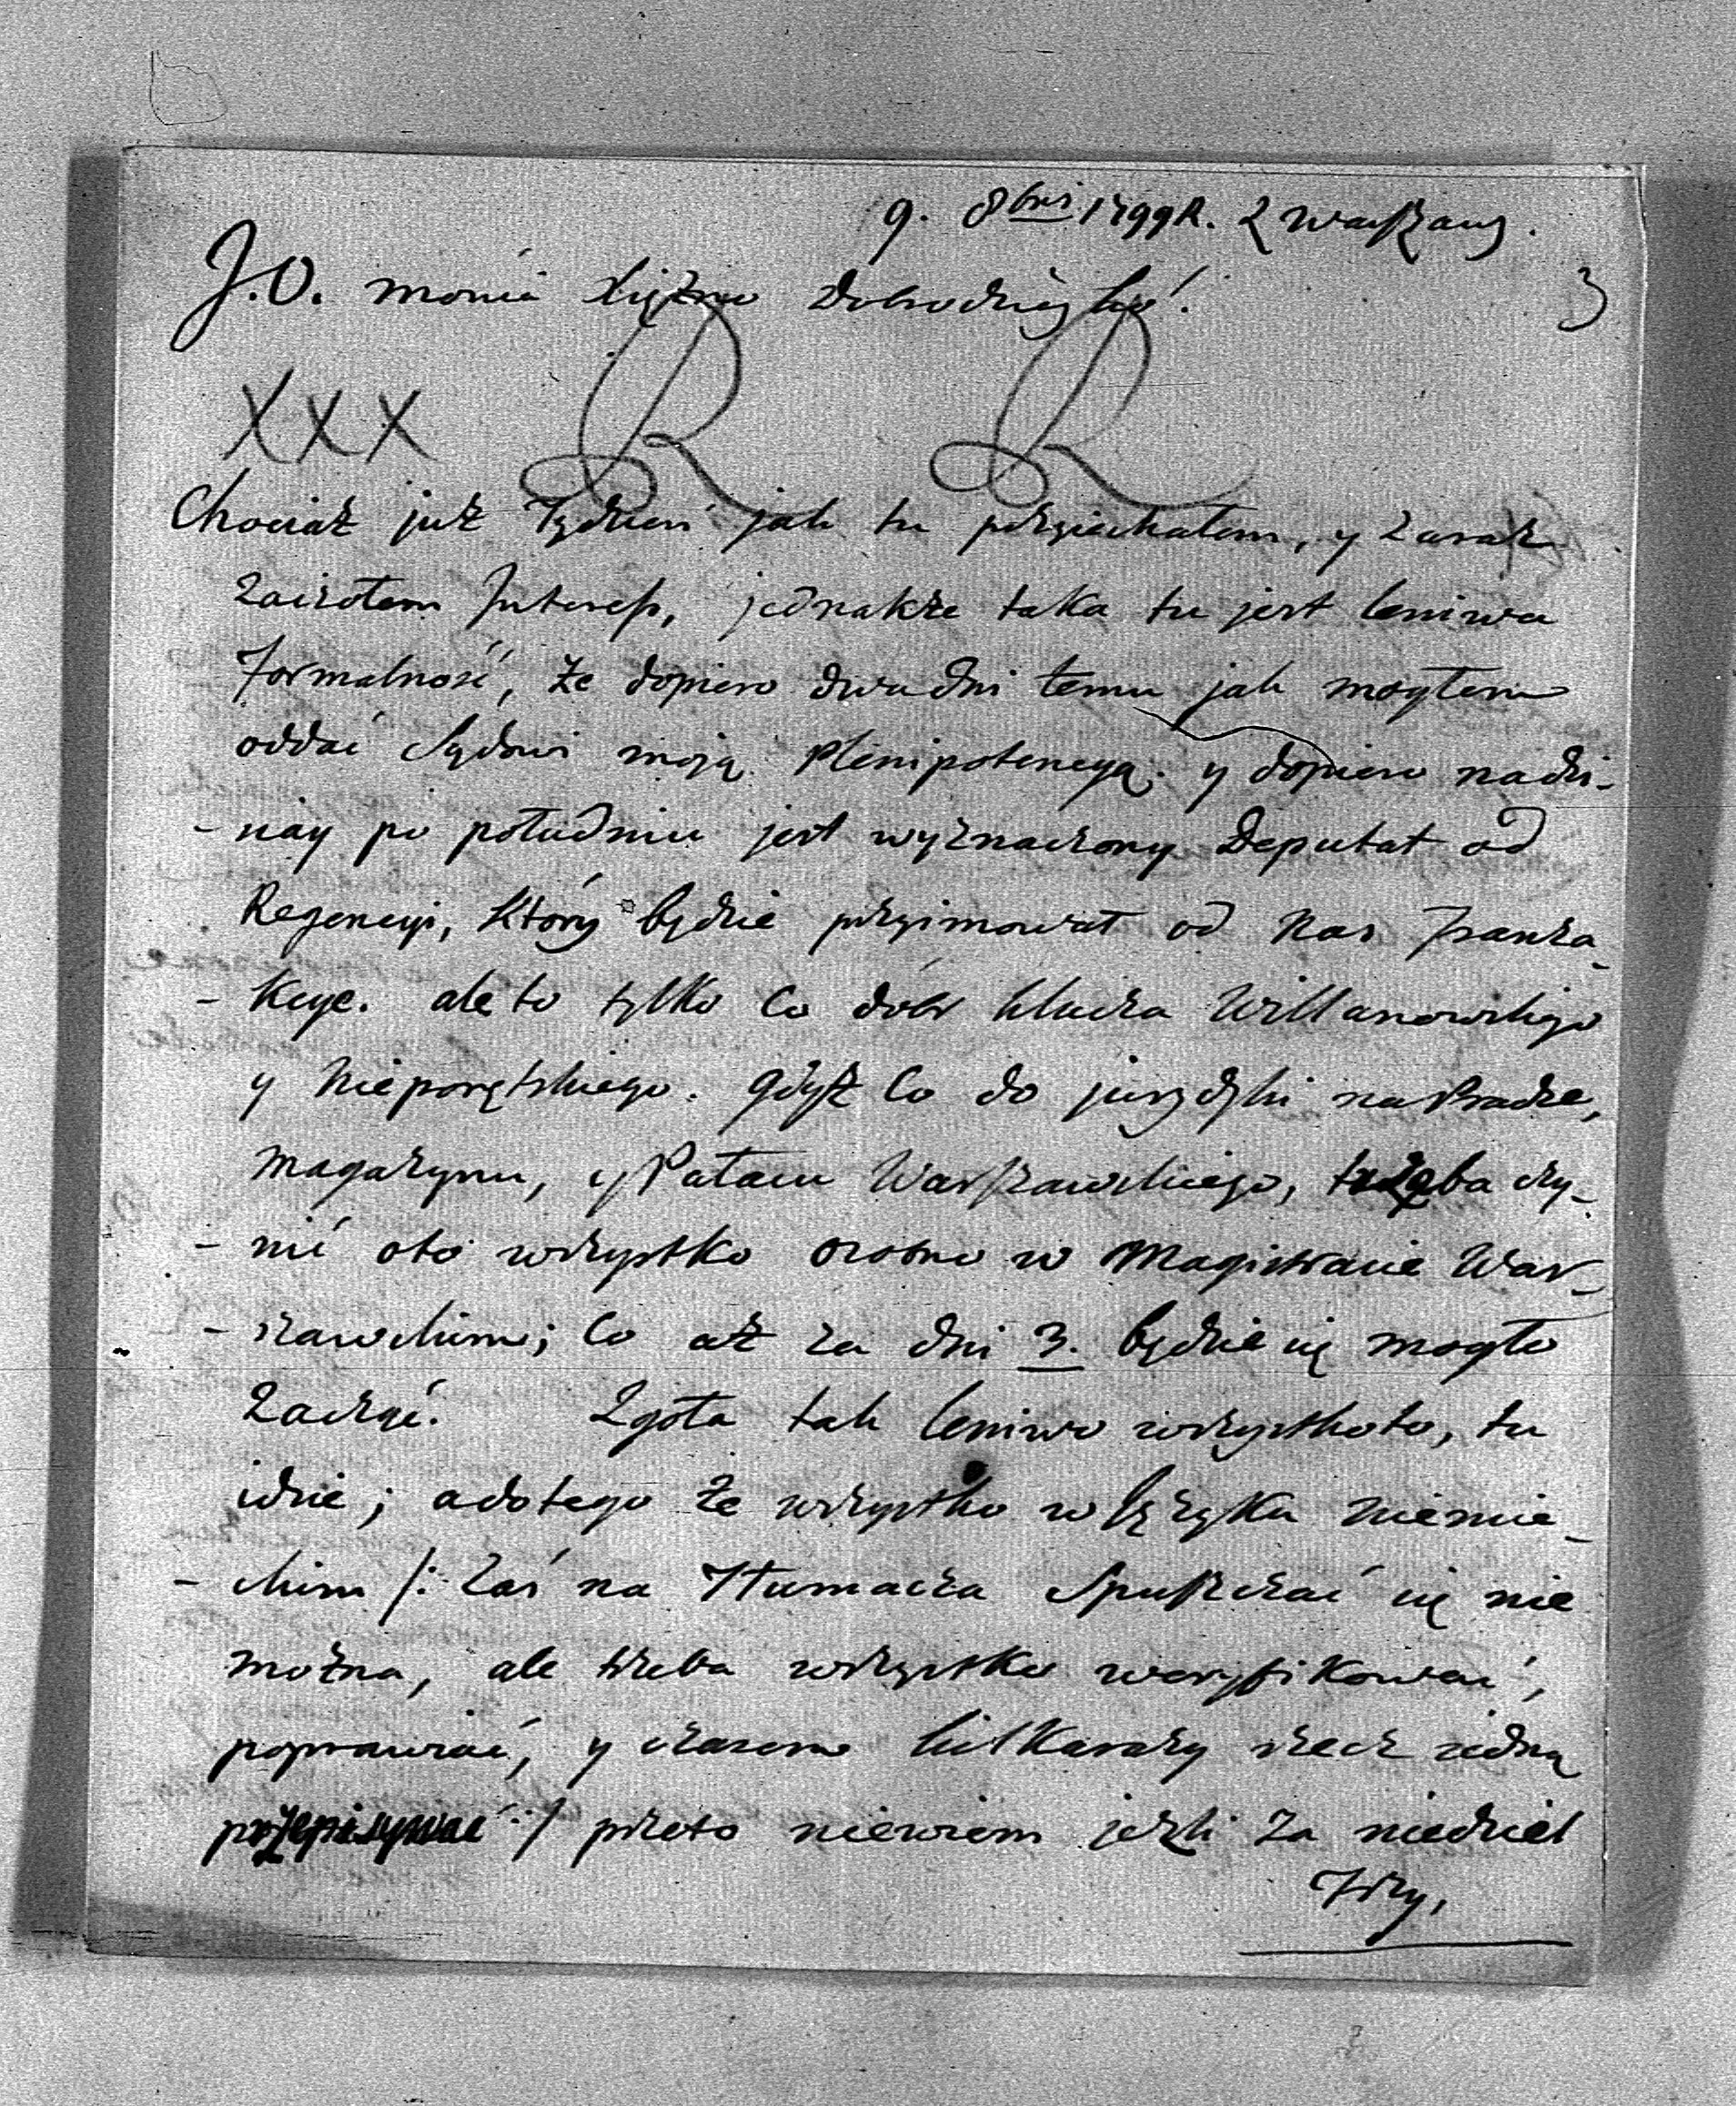 9. 8bris 1799 R. z Warszawy.
J.O. Mościa Xiężno Dobrodziejko!
3
XXX R R
Chociaż już Tydzień jak tu przyiechałem, y zaraz
zaiąłem Interess, jednakże taka tu jest leniwa
Formalność, że dopiero dwa dni temu jak mogłem
oddać Sądowi moją Plenipotencyą. y dopiero na dzi-
- siay po południu jest wyznaczony Deputat od
Regencyi, który będzie przyimował od nas Tranza-
- kcye. ale to tylko co dóbr klucza Willanowskiego
y Nieporętskiego. gdyż co do jurydyki na Pradze,
Magazynu, y Pałacu Warszawskiego, trzeba czy-
- nić oto wszystko osobno w Magistracie War-
- szawskim; co aż za dni 3. będzie się mogło
zacząć. Zgoła tak leniwo wszystko to, tu
idzie; a do tego że wszystko w Języku niemie-
- ckim /: zaś na Tłumacza spuszczać się nie
można, ale trzeba wszystko weryfikować,
poprawiać, y czasem kilka razy rzecz jedną
przepisywać :/ przeto niewiem jeżli za niedziel
Trzy,